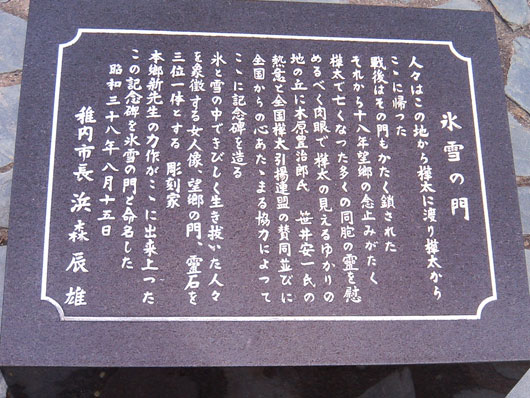 氷雪の門
人々はこの地から樺太に渡り樺太から
ここに帰った
戦後はその門もかたく鎖された
それから十八年望郷の念止みがたく
樺太で亡くなった多くの同胞の霊を慰
めるべく肉眼で樺太の見えるゆかりの
地の丘に木原豊治郎氏 笹井安一氏の
熱意と全国樺太引揚連盟の賛同並びに
全国からの心あたゝまる協力によって
ここに記念碑を造る
氷と雪の中できびしく生き抜いた人々
を象徴する女人像、望郷の門、霊石を
三位一体とする 彫刻家
本郷新先生の力作がここに出来上った
この記念碑を氷雪の門と命名した
昭和三十八年八月十五日
稚内市長 浜森辰雄